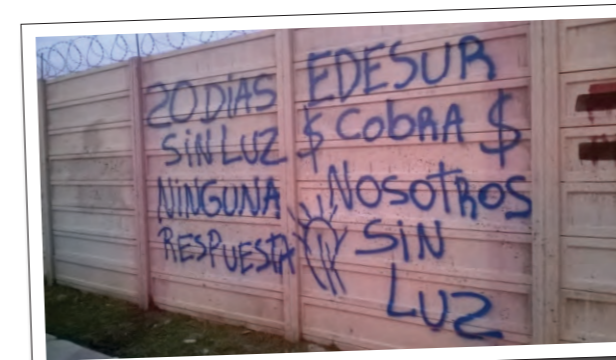 20 DÍAS
SIN LUZ
NINGUNA
RESPUESTA
EDESUR
$ CObRA $
NOSOTROS
SIN
LUZ